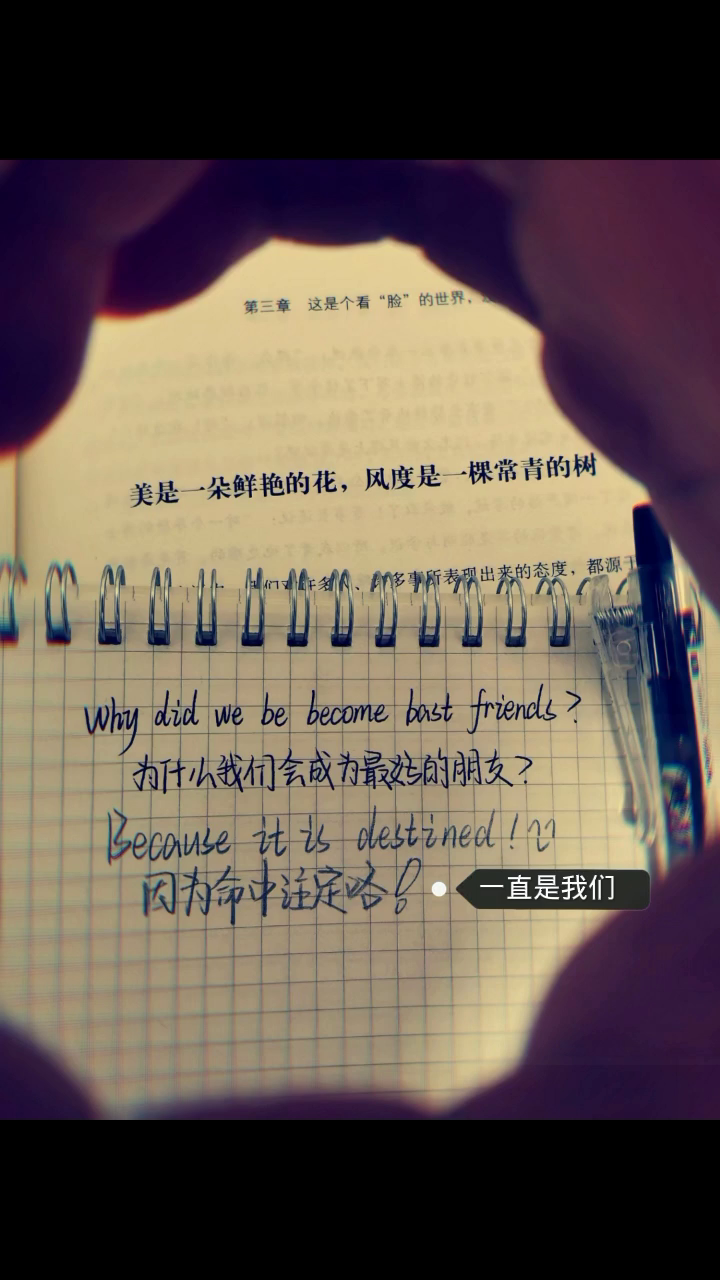 第三章 这是个看“脸”的世界，
美是一朵鲜艳的花，风度是一棵常青的树
们对许多人、许多事所表现出来的态度，都源于
Why did we be become bast friends?
为什么我们会成为最好的朋友？
Because it is destined!
因为命中注定咯！
一直是我们